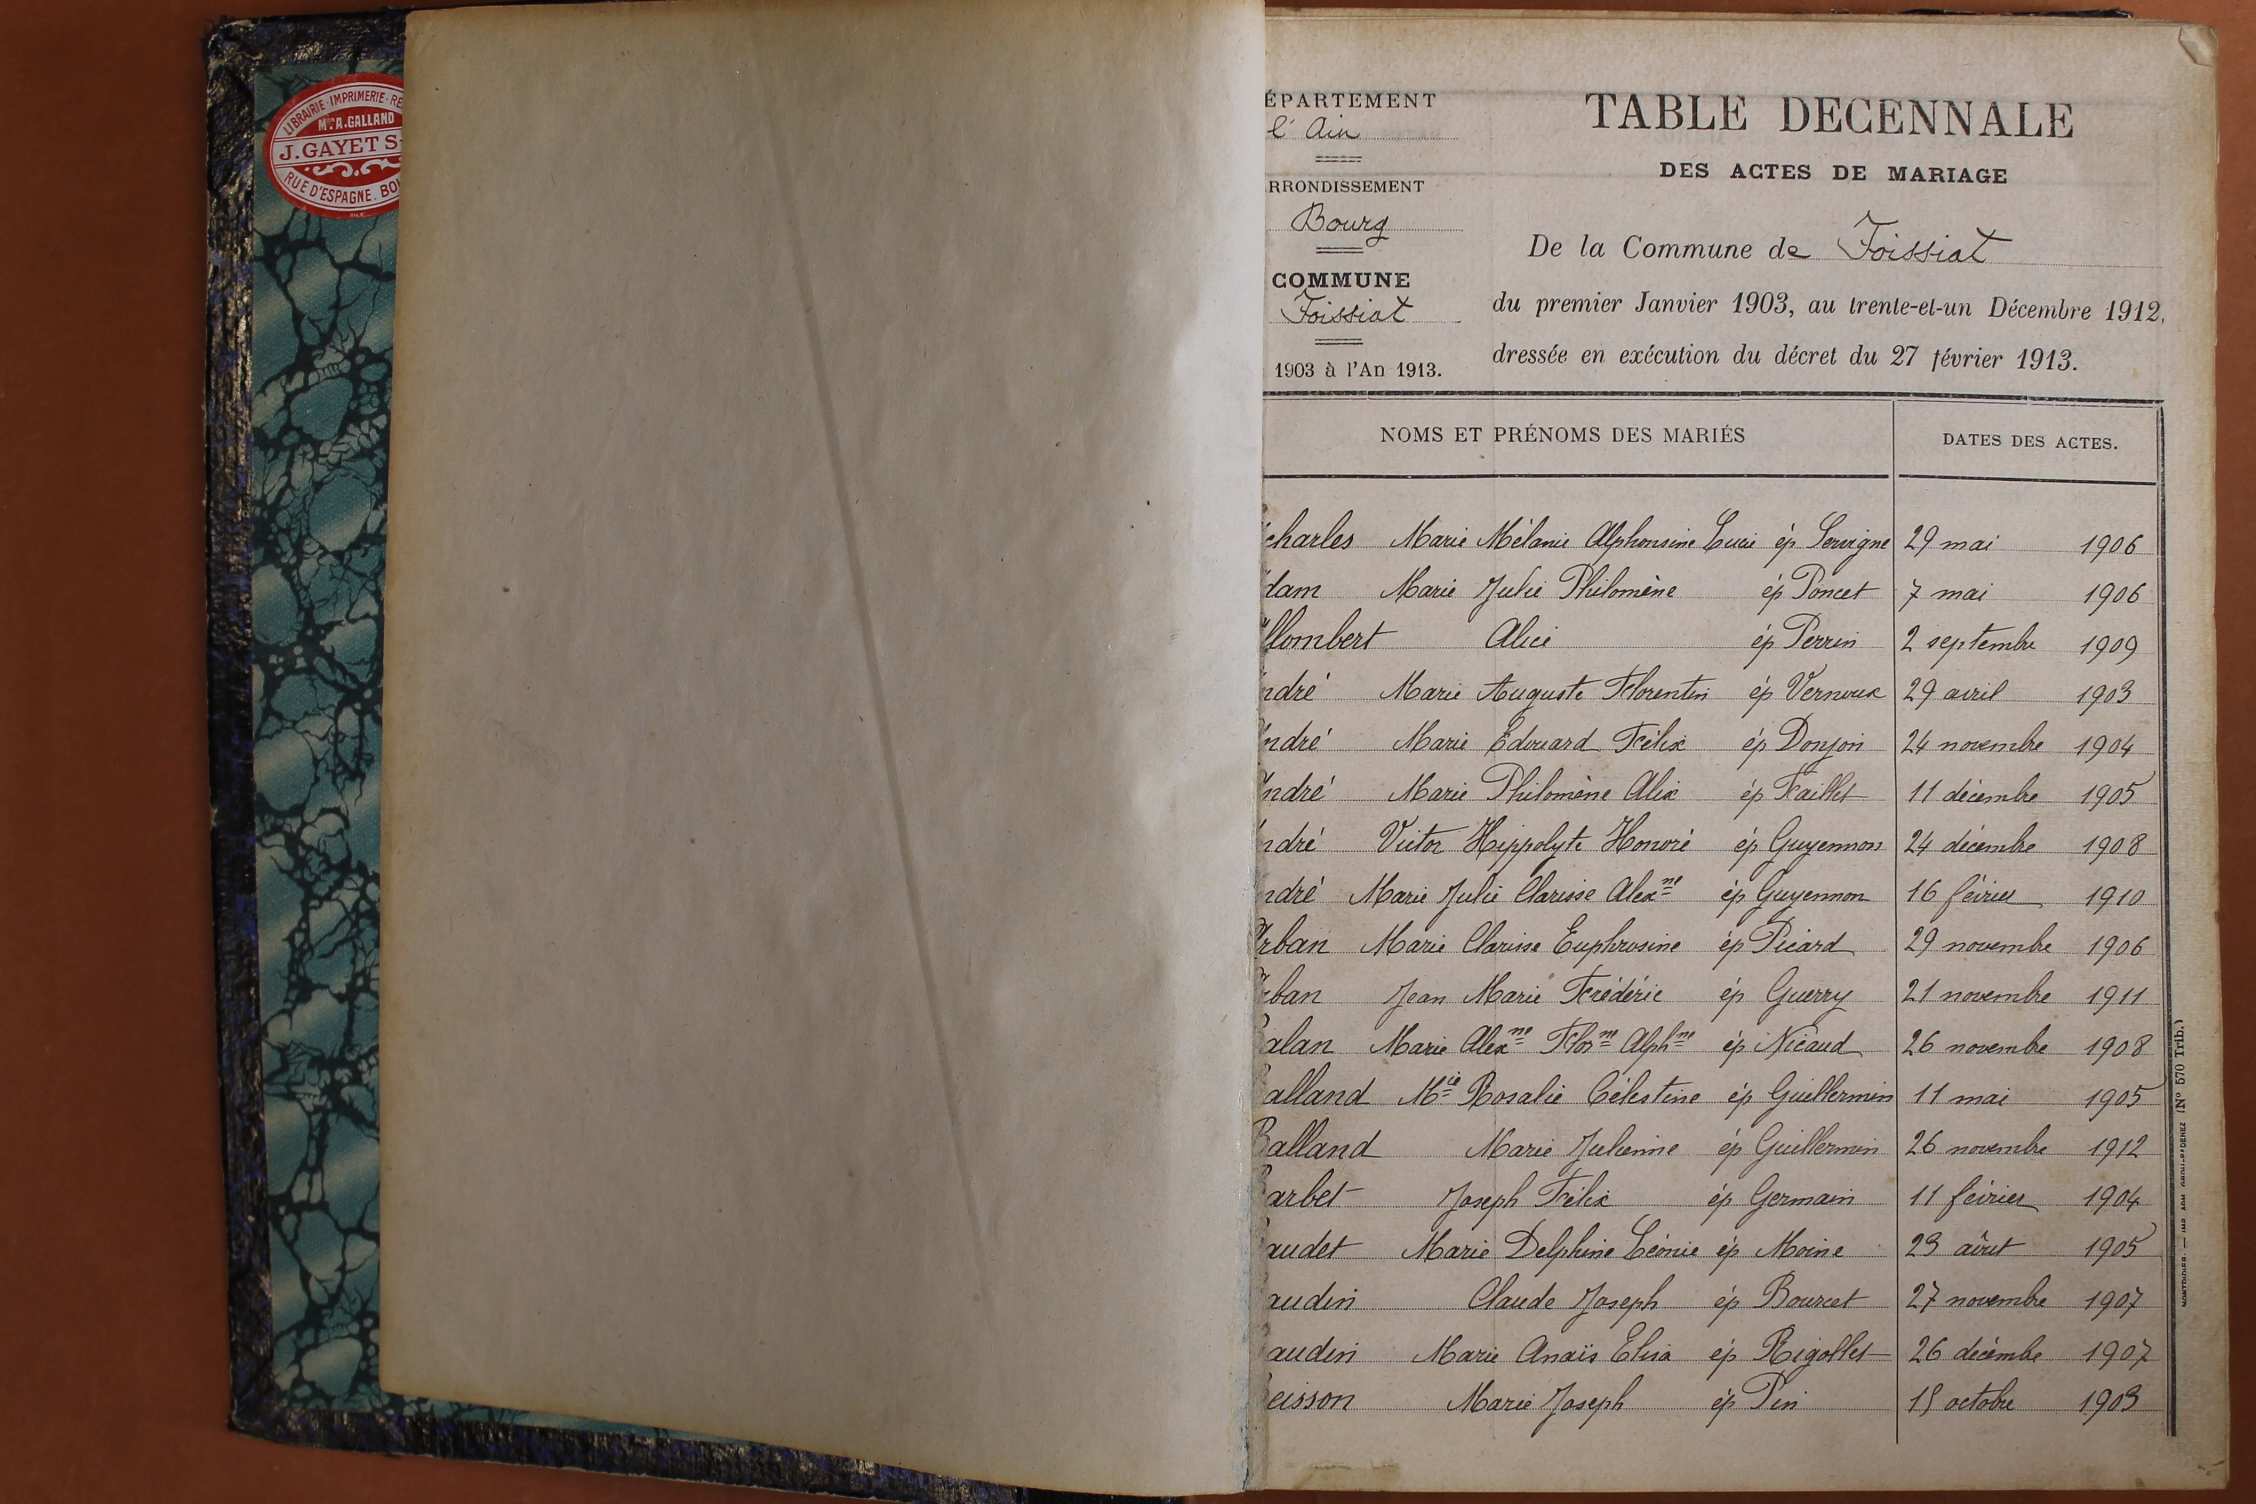 LIBRAIRIE · IMPRIMERIE · RE
Mon A. GALLAND
J. GAYET S
RUE D'ESPAGNE. BO
ÉPARTEMENT
l'Ain
RRONDISSEMENT
Bourg
COMMUNE
Foissiat
1903 à l'An 1913.
TABLE DECENNALE
DES ACTES DE MARIAGE
De la Commune de Foissiat
du premier Janvier 1903, au trente-et-un Décembre 1912,
dressée en exécution du décret du 27 février 1913.
NOMS ET PRÉNOMS DES MARIÉS DATES DES ACTES.
charles Marie Mélanie Alphonsine Lucie ép Servigne 29 mai 1906
dam Marie Julie Philomène ép Poncet 7 mai 1906
llombert Alice ép Perrin 2 septembre 1909
ndré Marie Auguste Florentin ép Vernoux 29 avril 1903
ndré Marie Edouard Félix ép Donjon 24 novembre 1904
ndré Marie Philomène Alix ép Faillet 11 décembre 1905
ndré Victor Hippolyte Honoré ép Guyennon 24 décembre 1908
ndré Marie Julie Clarisse Alexne ép Guyennon 16 février 1910
rban Marie Clarisse Euphrosine ép Picard 29 novembre 1906
rban Jean Marie Frédéric ép Guerry 21 novembre 1911
alan Marie Alexne Florne Alphne ép Nicaud 26 novembre 1908
alland Mie Rosalie Célestine ép Guillermin 11 mai 1905
Balland Marie Julienne ép Guillermin 26 novembre 1912
arbet Joseph Félix ép Germain 11 février 1904
audet Marie Delphine Léonie ép Moine 23 août 1905
audin Claude Joseph ép Bourcet 27 novembre 1907
audin Marie Anaïs Elisa ép Rigollet 26 décembre 1907
eisson Marie Joseph ép Pin 15 octobre 1903
(No 570 Trib.)